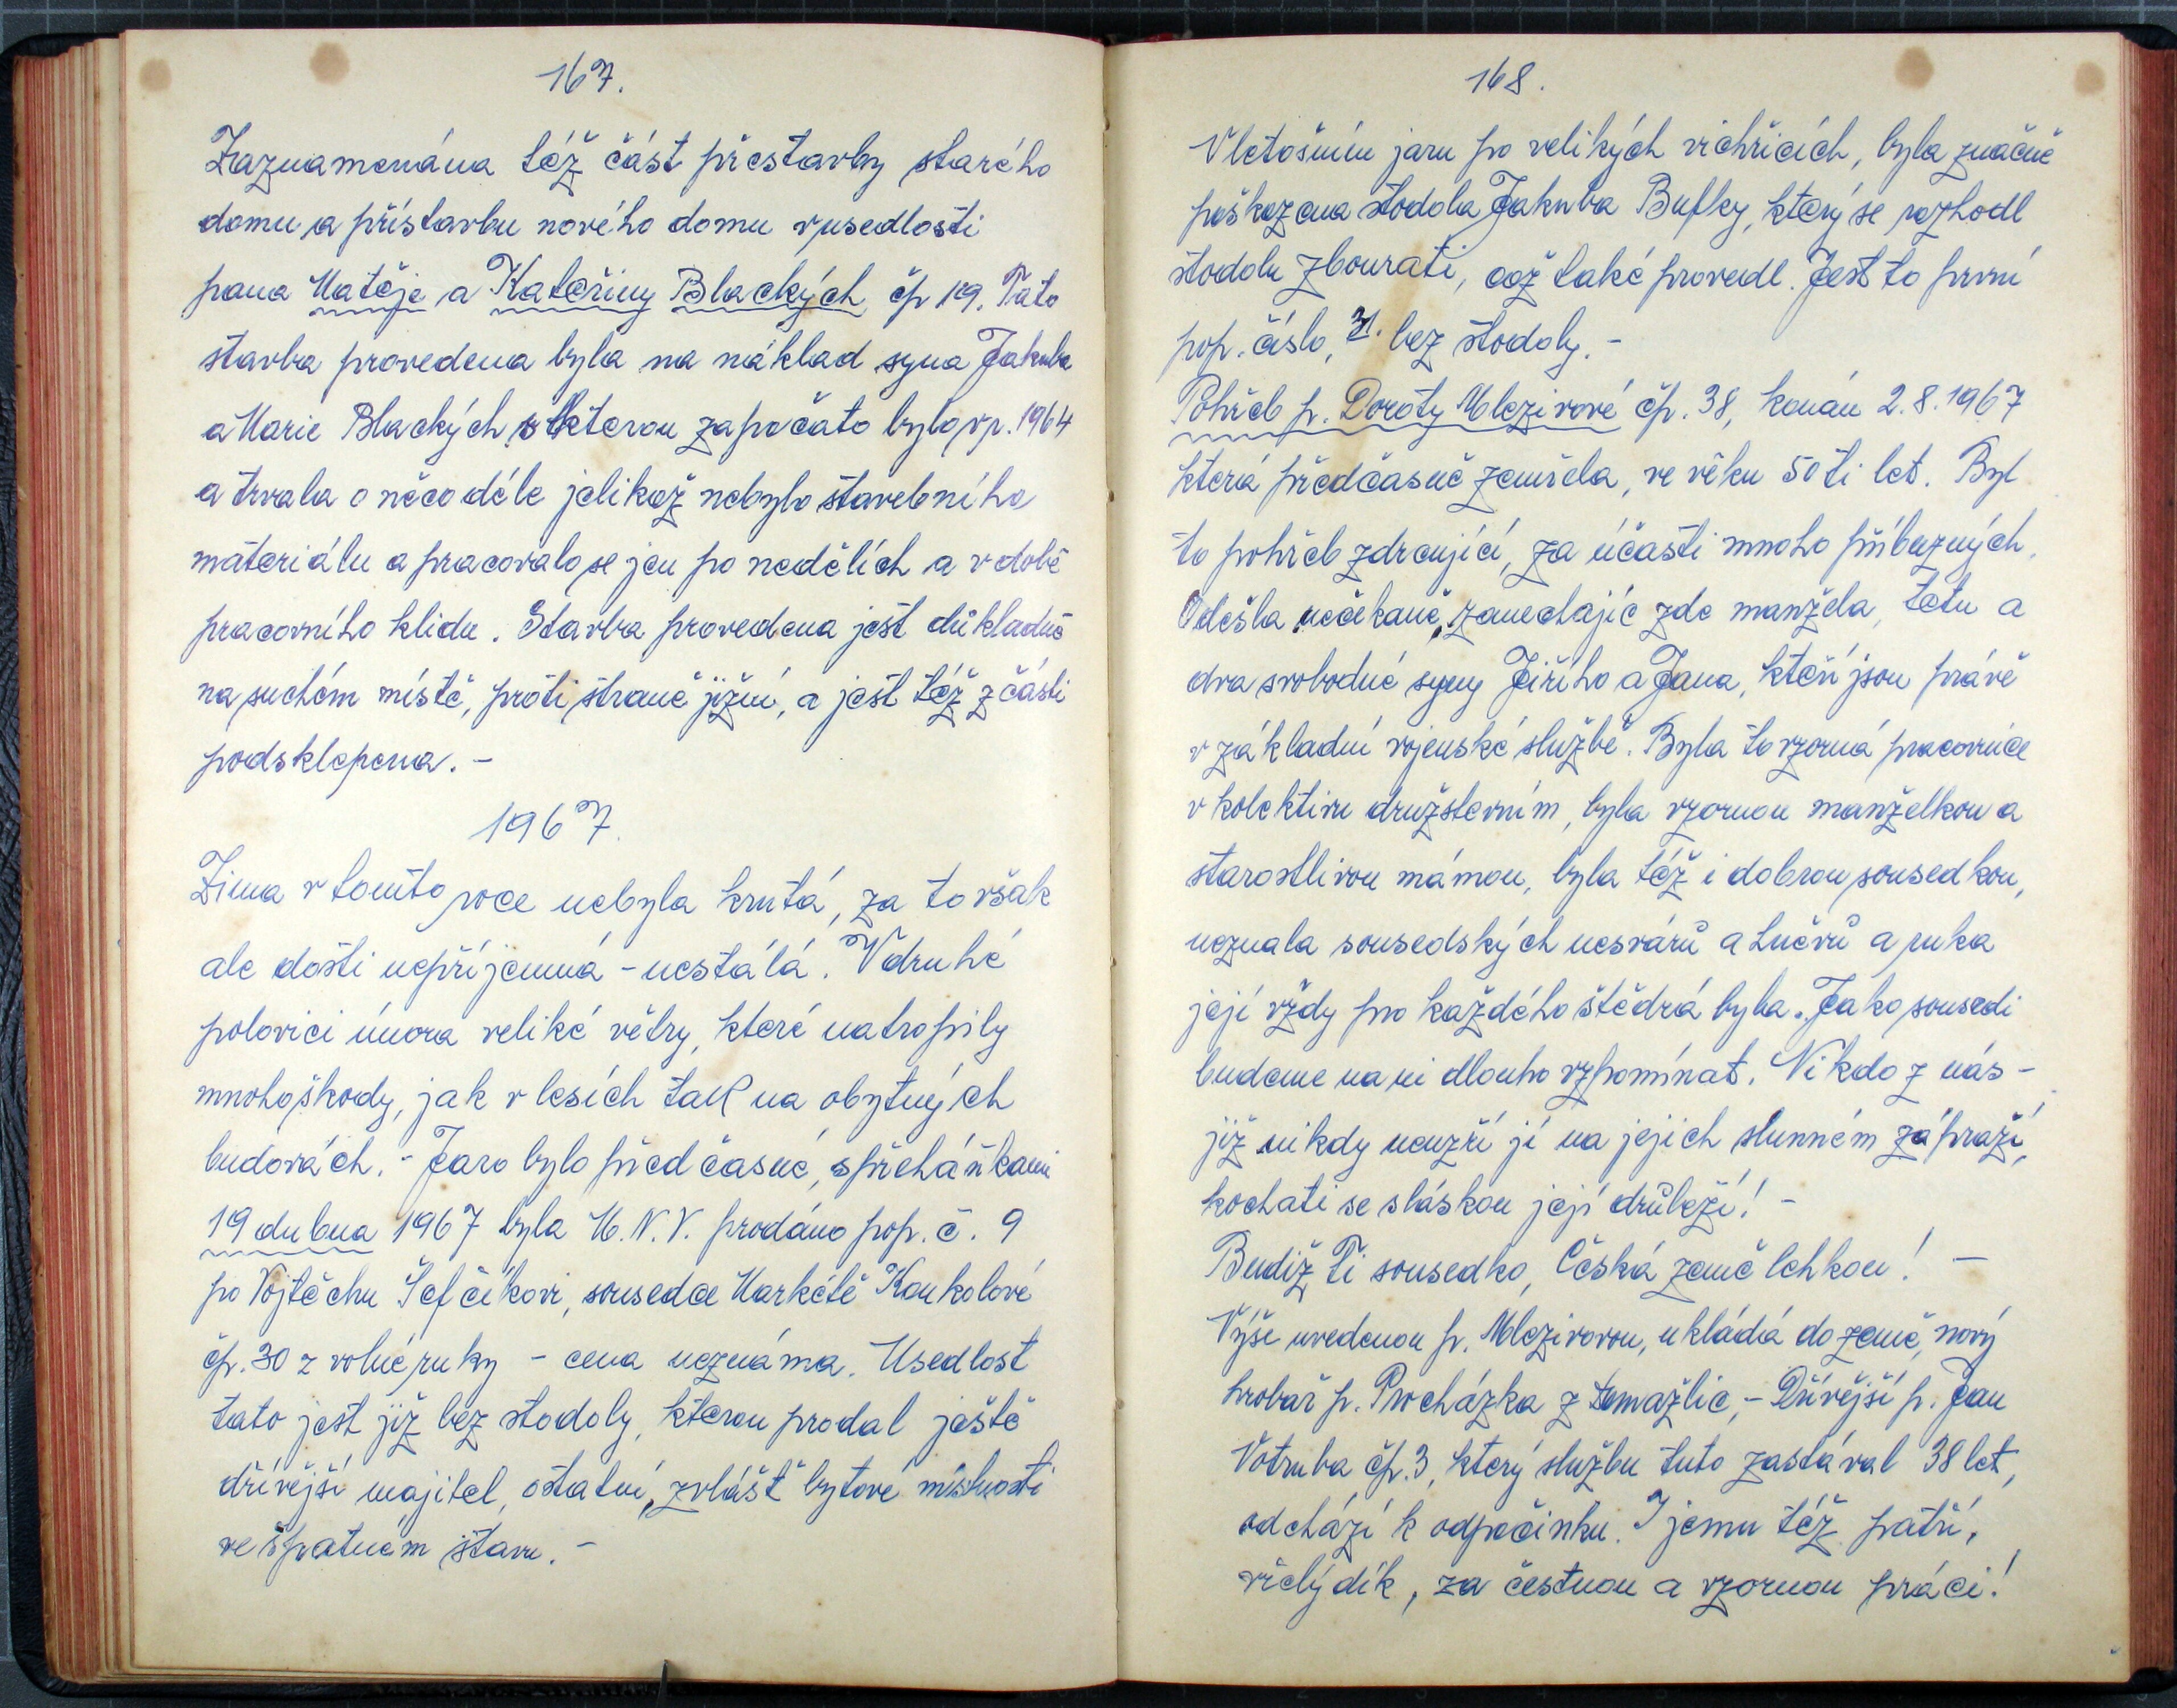 167.
Zaznamenána též část přestavby starého
domu a přístavbu nového domu v usedlosti
pana Matěje a Kateřiny Blackých čp 19. Tato
stavba provedena byla na náklad syna Jakuba
a Marie Blackých, s kterou započato bylo v r. 1964
a trvala o něco déle jelikož nebylo stavebního
materiálu a pracovalo se jen po nedělích a v době
pracovního klidu. Stavba provedena jest důkladně
na suchém místě, proti straně jižní, a jest též z části
podsklepena. -
1967.
Zima v tomto roce nebyla krutá, za to však
ale dosti nepříjemná - nestálá. V druhé
polovici února veliké větry, které natropily
mnoho škody, jak v lesích tak na obytných
budovách. - Jaro bylo předčasné, s přeháňkami
19 dubna 1967 byla M. N. V. prodáno pop. č. 9
po Vojtěchu Šefčíkovi, sousedce Markétě Koukolové
čp. 30 z volné ruky - cena neznáma. Usedlost
tato jest již bez stodoly, kterou prodal ještě
dřívější majitel, ostatní, zvlášť bytové místnosti
ve špatném stavu. -
168.
V letošním jaru po velikých vichřicích, byla značně
poškozena stodola Jakuba Bufky, který se rozhodl
stodolu zbourati, což také provedl. Jest to první
pop. číslo, 31. bez stodoly. -
Pohřeb p. Doroty Mlezivové čp. 38, konán 2. 8. 1967
která předčasně zemřela, ve věku 50 ti let. Byl
to pohřeb zdrcující, za účasti mnoho příbuzných,
Odešla nečekaně, zanechajíc zde manžela, tetu a
dva svobodné syny Jiřího a Jana, kteří jsou právě
v základní vojenské službě. Byla to vzorná pracovnice
v kolektivu družstevním, byla vzornou manželkou a
starostlivou mámou, byla též i dobrou sousedkou,
neznala sousedských nesvárů a hněvů a ruka
její vždy pro každého štědrá byla. Jako sousedi
budeme na ni dlouho vzpomínat. Nikdo z nás -
již nikdy neuzří jí na jejich slunném zápraží,
kochati se s láskou její drůbeží! -
Budiž Ti sousedko, Česká země lehkou! -
Výše uvedenou p. Mlezivovou, ukládá do země, nový
hrobař p. Procházka z Domažlic, - Dřívější p. Jan
Votruba čp. 3, který službu tuto zastával 38 let,
odchází k odpočinku. I jemu též patří,
vřelý dík, za čestnou a vzornou práci!